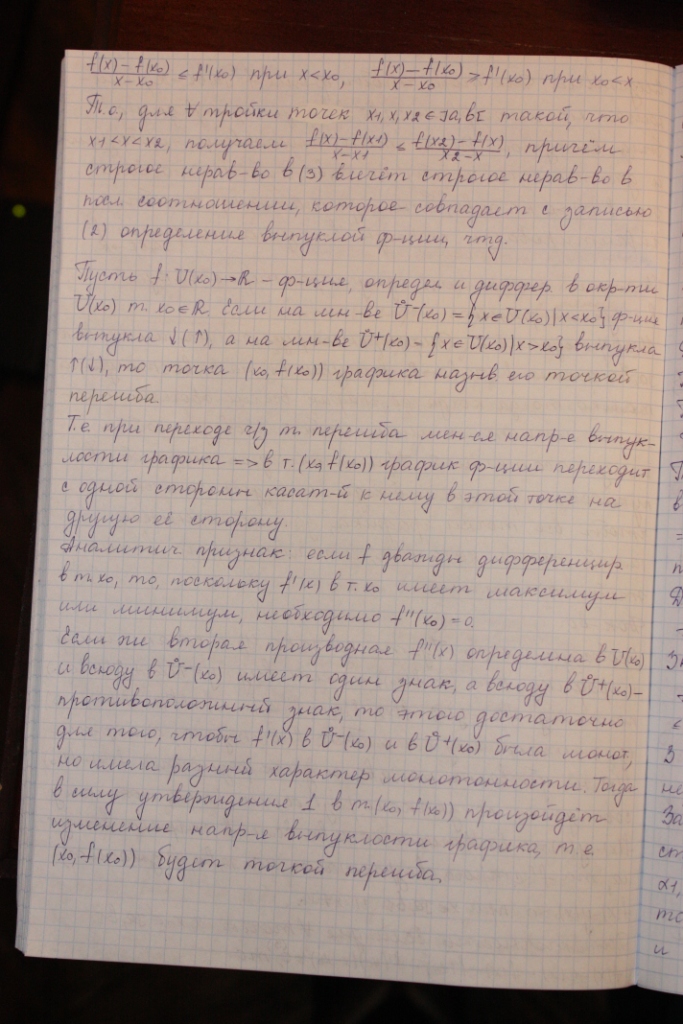 (f(x)-f(x0))/(x-x0) ≤ f'(x0) при x<x0, (f(x)-f(x0))/(x-x0) ≥ f'(x0) при x0<x
Т.о, для ∀ тройки точек x1, x, x2 ∈ ]a,b[ такой, что
x1<x<x2, получаем (f(x)-f(x1))/(x-x1) ≤ (f(x2)-f(x))/(x2-x), причём
строгое нерав-во в (3) влечёт строгое нерав-во в
посл. соотношении, которое совпадает с записью
(2) определения выпуклой ф-ции, чтд.
Пусть f: U(x0)→R - ф-ция, определ и диффер. в окр-ти
U(x0) т. x0∈R. Если на мн-ве Ů⁻(x0)={x∈U(x0)|x<x0} ф-ция
выпукла ↓(↑), а на мн-ве Ů⁺(x0)-{x∈U(x0)|x>x0} выпукла
↑(↓), то точка (x0, f(x0)) графика назыв. его точкой
перегиба.
Т.е. при переходе ч/з т. перегиба мен-ся напр-е выпук-
лости графика => в т.(x0, f(x0)) график ф-ции переходит
с одной стороны касат-й к нему в этой точке на
другую её сторону.
Аналитич. признак: если f дважды дифференцир.
в т.x0, то, поскольку f'(x) в т. x0 имеет максимум
или минимум, необходимо f''(x0)=0.
Если же вторая производная f''(x) определена в U(x0)
и всюду в Ů⁻(x0) имеет один знак, а всюду в Ů⁺(x0)-
противоположный знак, то этого достаточно
для того, чтобы f'(x) в Ů⁻(x0) и в Ů⁺(x0) была монот,
но имела разный характер монотонности. Тогда
в силу утверждения 1 в т.(x0, f(x0)) произойдёт
изменение напр-я выпуклости графика, т.е.
(x0, f(x0)) будет точкой перегиба.